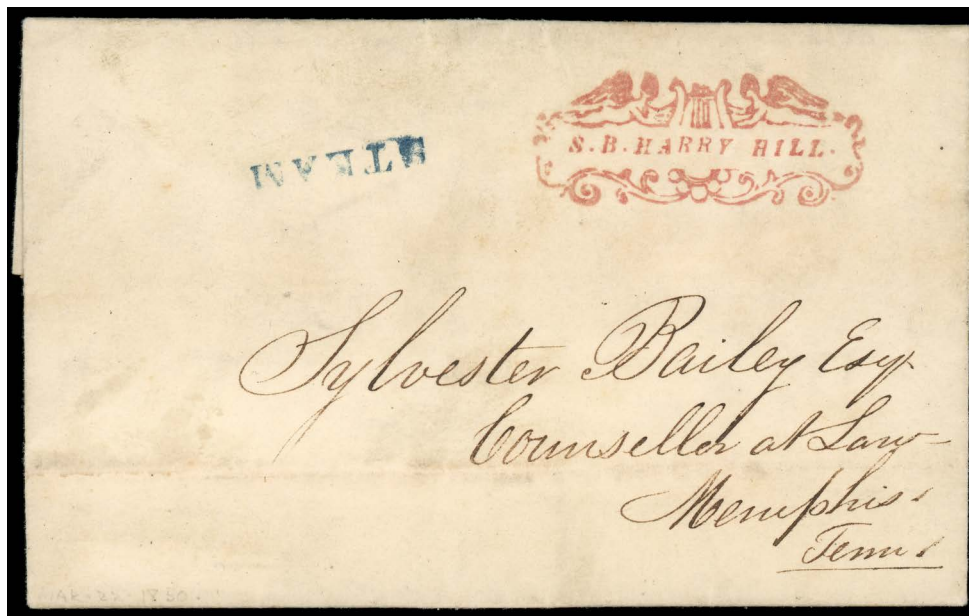 STEAM
S.B. HARRY HILL.
Sylvester Bailey Esq.
Counseller at Law
Memphis
Tenn.
MAR-22-1850